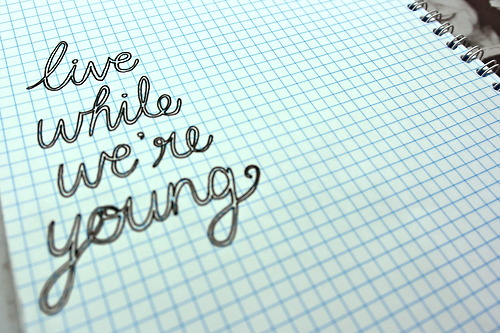 live
while
we're
young